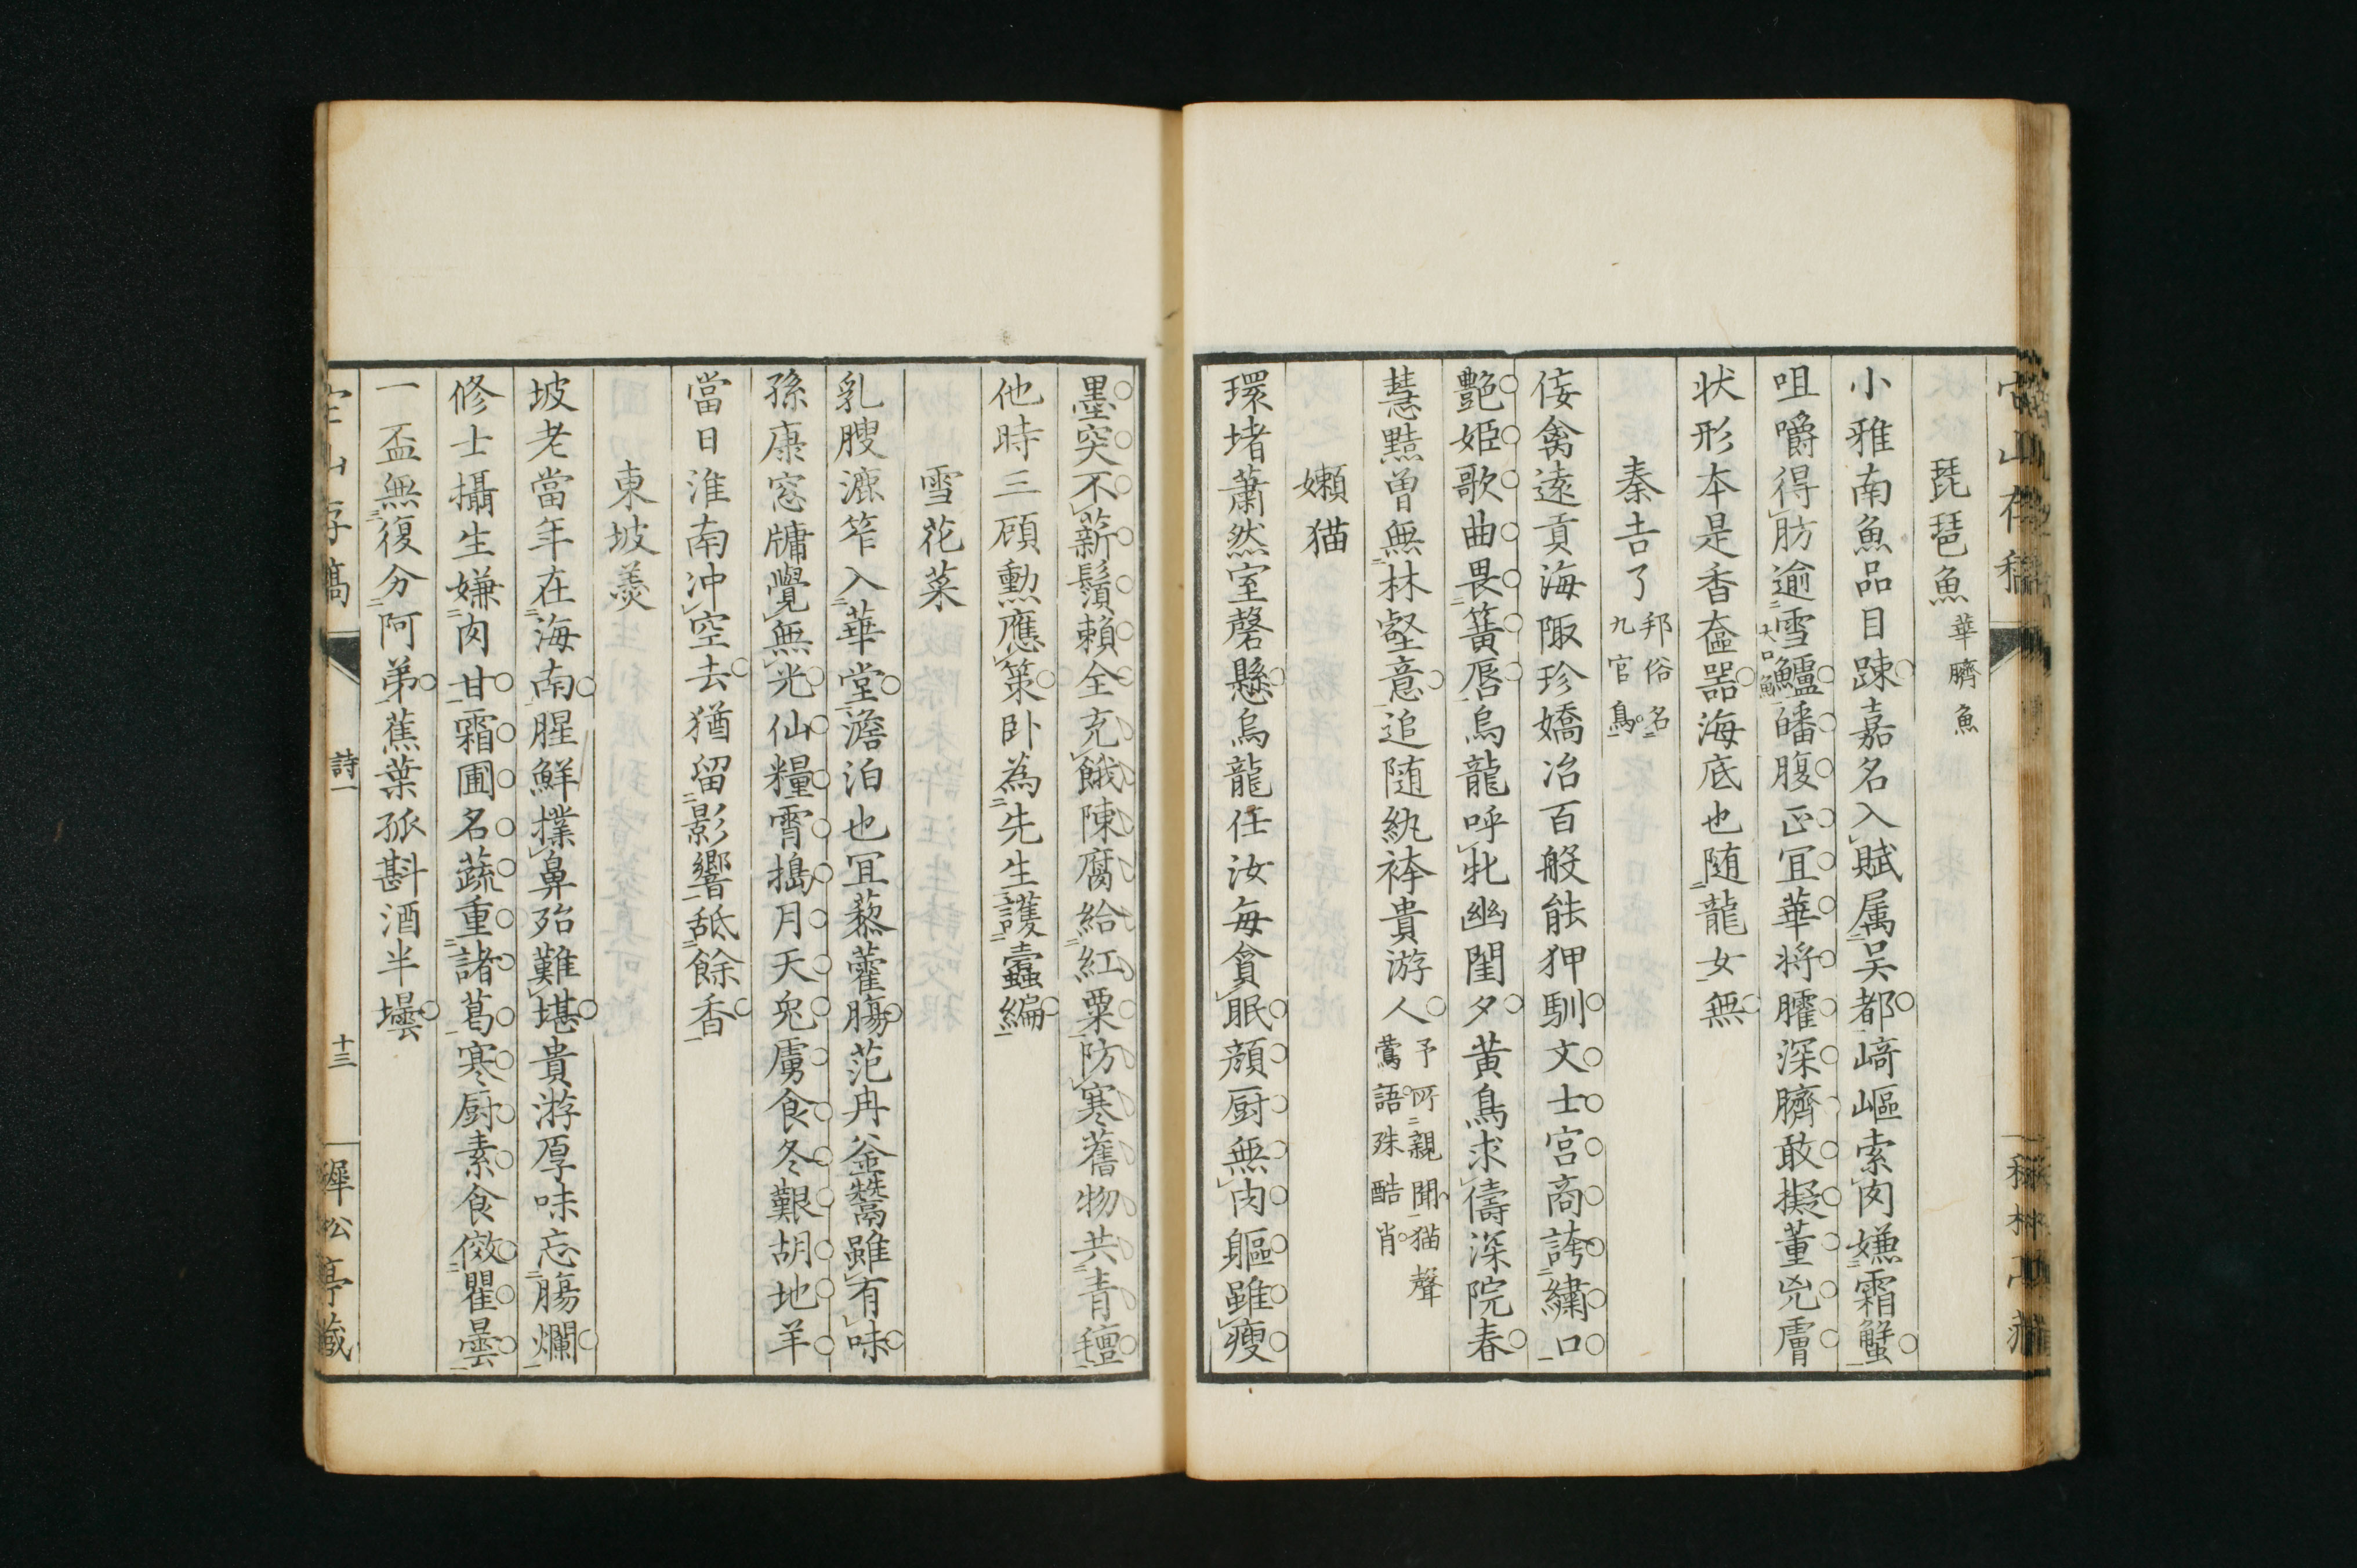 琵琶魚 華臍魚
小雅南魚品目踈嘉名入賦属吴都﨑嶇索肉嫌霜蟹
咀嚼得肪逾雪鱸大口魚皤腹正宜華将臛深臍敢擬董兇膚
状形本是香奩器海底也随龍女無
秦吉了 邦俗名九官鳥
倭禽遠貢海陬珍嬌冶百般能狎馴文士宮商誇繍口
艶姫歌曲畏簧唇烏龍呼牝幽閨夕黄鳥求儔深院春
慧黠曽無林壑意追随紈袴貴游人 予所親聞猫聲鶯語殊酷肖
嬾猫
環堵蕭然室磬懸烏龍任汝毎貪眠顔厨無肉軀雖瘦
墨突不薪鬚頼全充餓陳腐給紅粟防寒舊物共青氊
他時三顧勲應策卧為先生護蠹編
雪花菜
乳膄漉笮入華堂澹泊也冝藜藿腸范冉釜鬵雖有味
孫康窓牗覺無光仙糧霄搗月天兔虜食冬艱胡地羊
當日淮南冲空去猶留影響舐餘香
東坡羮
坡老當年在海南腥鮮撲鼻殆難堪貴游厚味忘腸爛
修士攝生嫌肉甘霜圃名蔬重諸葛寒厨素食傚瞿曇
一盃無復分阿弟蕉葉孤斟酒半壜
詩一
十三